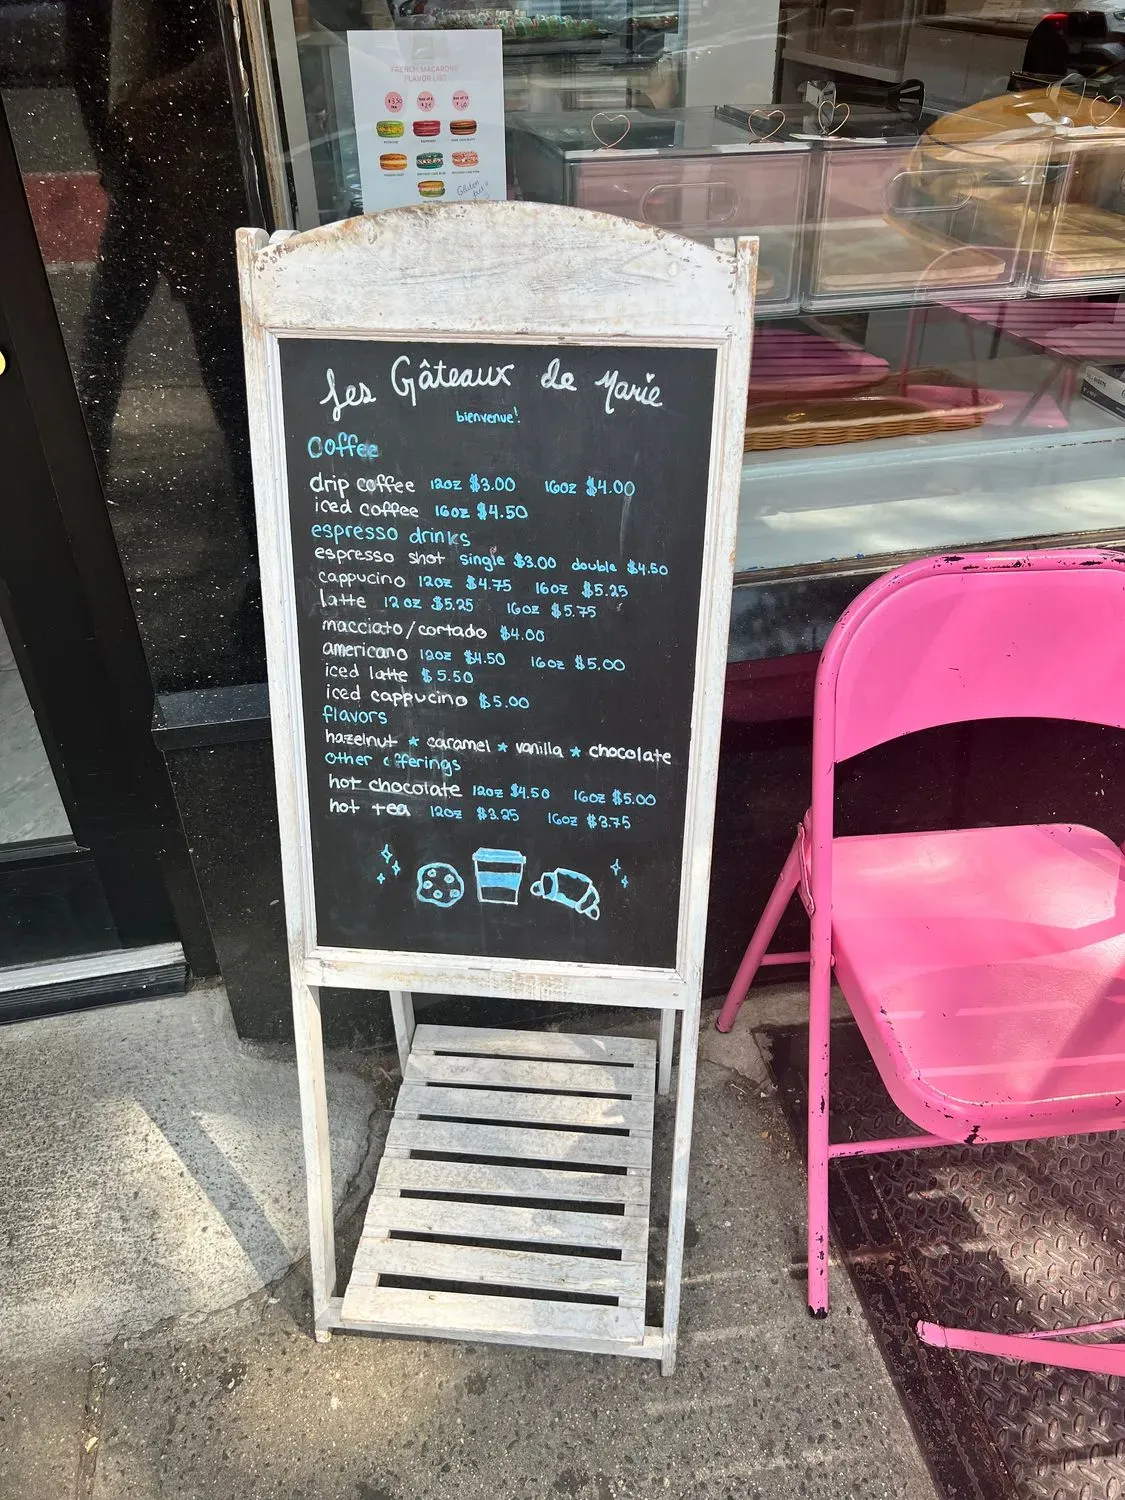 FRENCH MACARONS
FLAVOR LIST
$3.50
Gluten
Les Gâteaux de Marie
bienvenue!
coffee
drip coffee 12oz $3.00 16oz $4.00
iced coffee 16oz $4.50
espresso drinks
espresso shot single $3.00 double $4.50
cappucino 12oz $4.75 16oz $5.25
latte 12oz $5.25 16oz $5.75
macciato/cortado $4.00
americano 12oz $4.50 16oz $5.00
iced latte $5.50
iced cappucino $5.00
flavors
hazelnut * caramel * vanilla * chocolate
other offerings
hot chocolate 12oz $4.50 16oz $5.00
hot tea 12oz $3.25 16oz $3.75